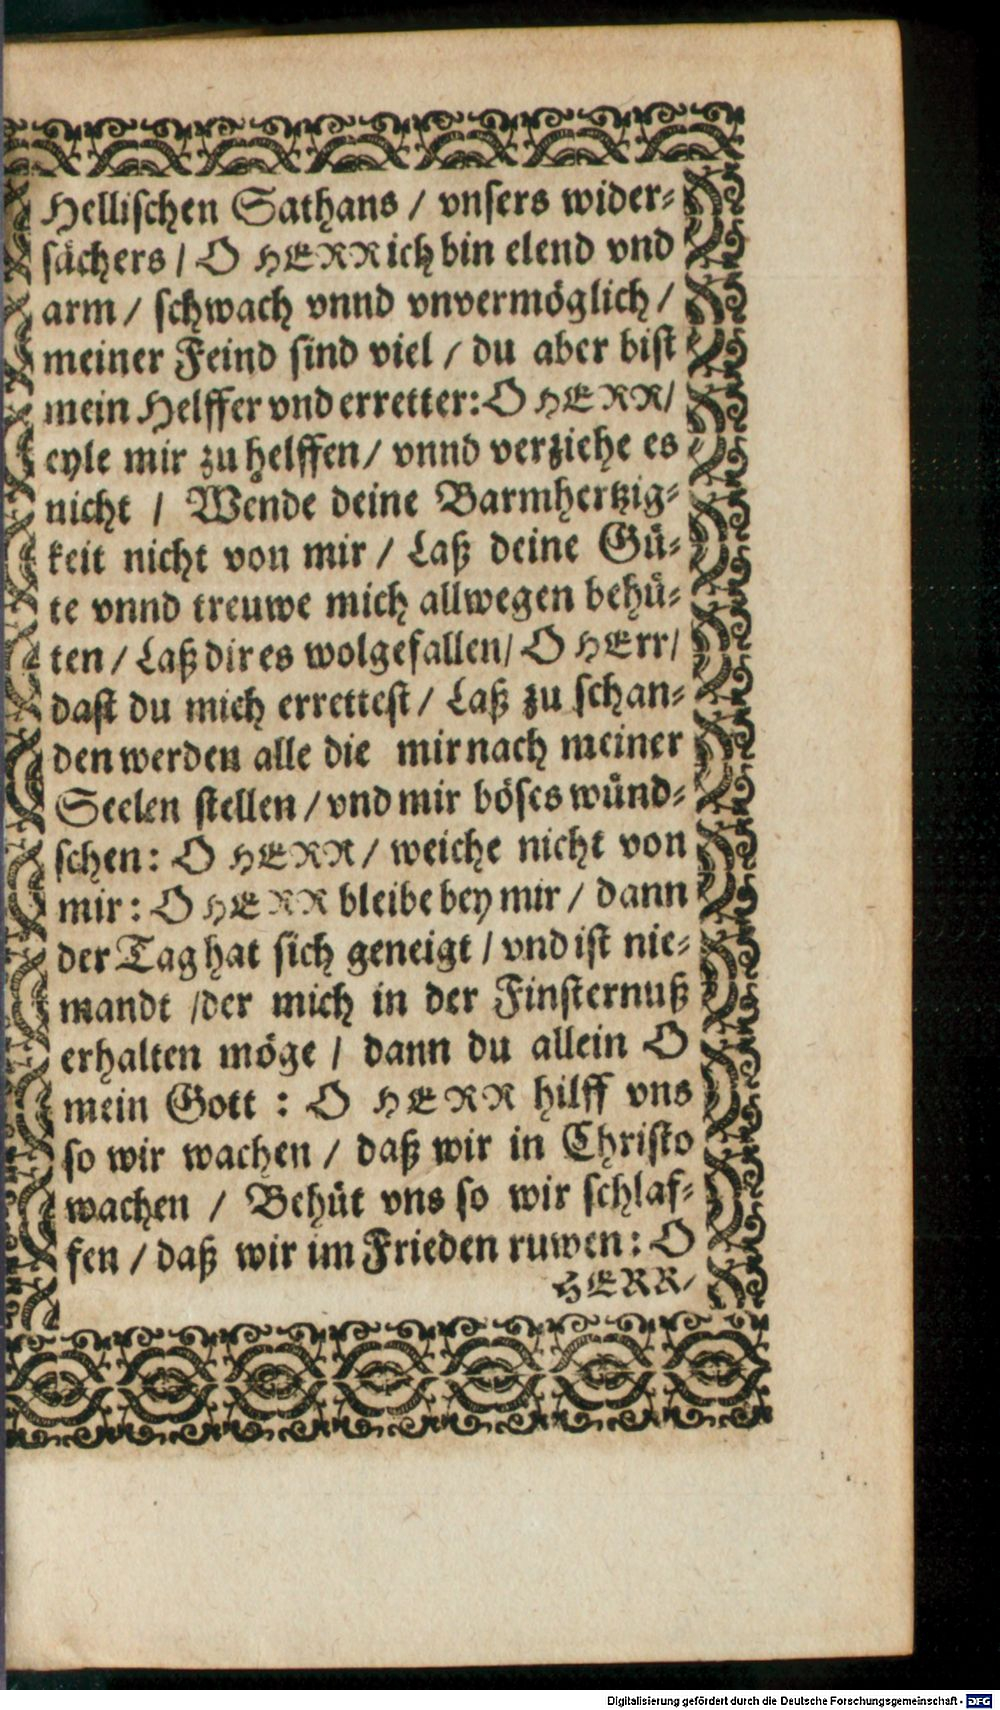 Hellischen Sathans / vnsers wider⸗
sächers / O HERR ich bin elend vnd
arm / schwach vnnd vnvermöglich /
meiner Feind sind viel / du aber bist
mein Helffer vnd erretter: O HERR /
eyle mir zu helffen / vnnd verziehe es
nicht / Wende deine Barmhertzig⸗
keit nicht von mir / Laß deine Gü⸗
te vnnd treuwe mich allwegen behü⸗
ten / Laß dir es wolgefallen / O HErr /
dast du mich errettest / Laß zu schan⸗
den werden alle die mir nach meiner
Seelen stellen / vnd mir böses wünd⸗
schen: O HERR / weiche nicht von
mir: O HERR bleibe bey mir / dann
der Tag hat sich geneigt / vnd ist nie⸗
mandt / der mich in der Finsternuß
erhalten möge / dann du allein O
mein Gott : O HERR hilff vns
so wir wachen / daß wir in Christo
wachen / Behüt vns so wir schlaf⸗
fen / daß wir im Frieden ruwen: O
HERR /
Digitalisierung gefördert durch die Deutsche Forschungsgemeinschaft - DFG